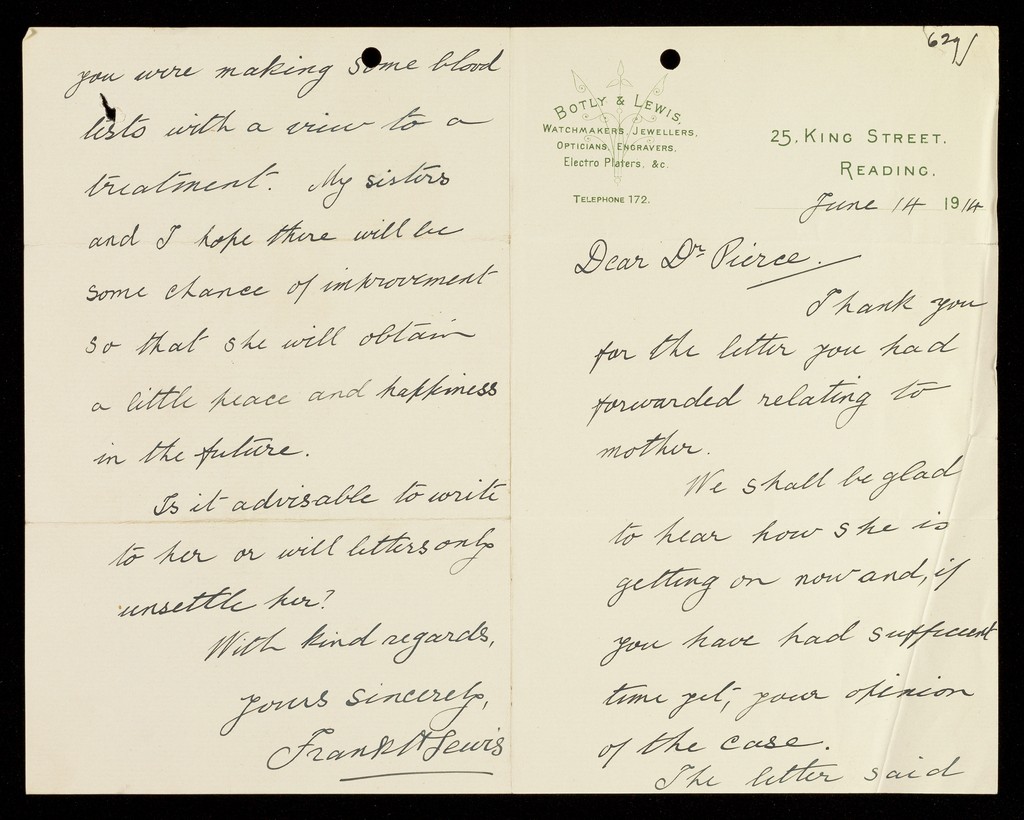 629/
BOTLY & LEWIS,
WATCHMAKERS, JEWELLERS,
OPTICIANS, ENGRAVERS,
Electro Platers, &c.
TELEPHONE 172.
25, KING STREET,
READING.
June 14 1914
Dear Dr Pierce.
Thank you
for the letter you had
forwarded relating to
mother.
We shall be glad
to hear how she is
getting on now and, if
you have had sufficient
time yet, your opinion
of the case.
The letter said
you were making some blood
tests with a view to a
treatment. My sisters
and I hope there will be
some chance of improvement
so that she will obtain
a little peace and happiness
in the future.
Is it advisable to write
to her or will letters only
unsettle her?
With kind regards,
yours sincerely,
Frank H Lewis